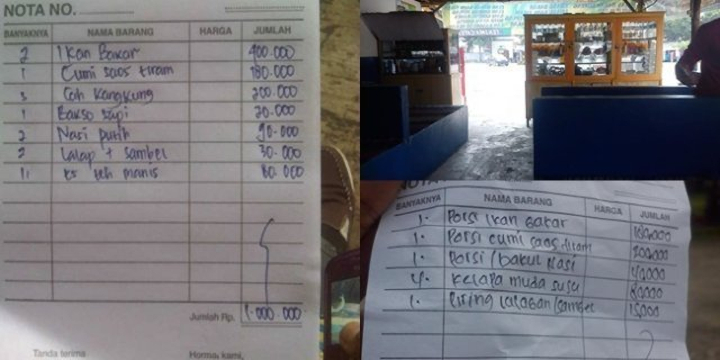 NOTA NO.
BANYAKNYA NAMA BARANG HARGA JUMLAH
2 Ikan Bakar 400.000
1 Cumi saos tiram 180.000
3 Cah Kangkung 200.000
1 Bakso sapi 20.000
2 Nasi putih 90.000
2 Lalap + sambel 30.000
11 es teh manis 80.000
Jumlah Rp. 1.000.000
Tanda terima Hormat kami,
NOTA
BANYAKNYA NAMA BARANG HARGA JUMLAH
1. Porsi Ikan Bakar
1. Porsi cumi saos tiram 200000
1. Porsi / bakul Nasi 40000
4. Kelapa muda susu 80000
1. Piring lalapan/sambel 15000